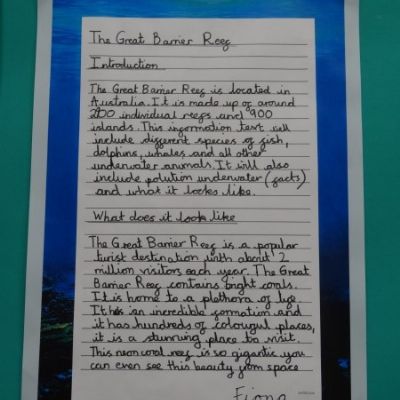 The Great Barrier Reef
Introduction
The Great Barrier Reef is located in
Australia. It is made up of around
200 individual reefs and 900
islands. This information text will
include different species of fish,
dolphins, whales and all other
underwater animals. It will also
include polution underwater (facts)
and what it lookes like.
What does it look like
The Great Barrier Reef is a popular
turist destination with about 2
million visitors each year. The Great
Barrier Reef contains bright corals.
It is home to a plethora of life.
It is an incredible formation and
it has hundreds of colourful places,
it is a stunning place to visit.
This neon coral reef is so gigantic you
can even see this beauty from space
Fiona